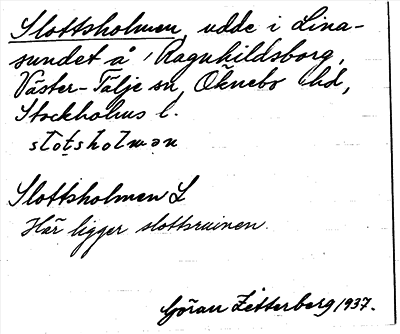 Slottsholmen, udde i Lina-
sundet å Ragnhildsborg,
Väster-Tälje sn, Öknebo hd,
Stockholms l.
slotsholmən
Slottsholmen L
Här ligger slottsruinen.
Göran Zetterberg 1937.